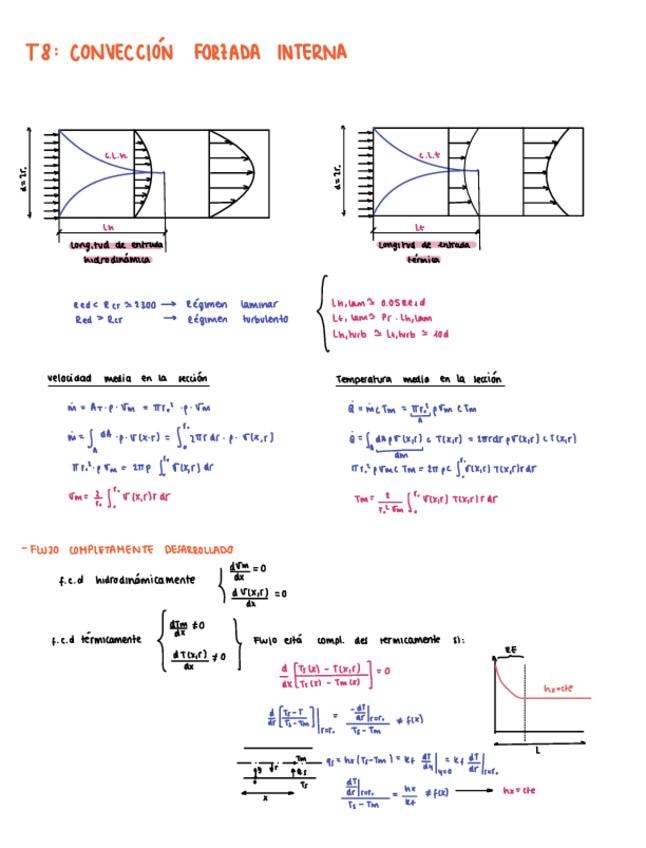 T8: CONVECCIÓN FORZADA INTERNA
d = 2r₀
C.L.h
Lh
Longitud de entrada
hidrodinámica
d = 2r₀
C.L.t
Lt
Longitud de entrada
térmica
Red < Rcr ≃ 2300 → Régimen laminar
Red > Rcr → Régimen turbulento
Lh,lam ≃ 0.05 Re d
Lt, lam ≃ Pr · Lh,lam
Lh,turb ≃ Lt,turb ≃ 10d
Velocidad media en la sección
ṁ = AT · ρ · Vm = πr₀² · ρ · Vm
ṁ = ∫A dA · ρ · V(x·r) = ∫₀^r₀ 2πr dr · ρ · V(x,r)
πr₀² · ρ Vm = 2πρ ∫₀^r₀ V(x,r) dr
Vm = 2/r₀ ∫₀^r₀ V(x,r) r dr
Temperatura media en la sección
Q̇ = ṁ c Tm = πr₀² ρ Vm c Tm
Q̇ = ∫A dA ρ V(x,r) c T(x,r) = 2πr dr ρ V(x,r) c T(x,r)
dm
πr₀² ρ Vm c Tm = 2πρc ∫₀^r₀ V(x,r) T(x,r) r dr
Tm = 2/(r₀² Vm) ∫₀^r₀ V(x,r) T(x,r) r dr
- FLUJO COMPLETAMENTE DESARROLLADO
f.c.d hidrodinámicamente
dVm/dx = 0
dV(x,r)/dx = 0
f.c.d térmicamente
dTm/dx ≠ 0
dT(x,r)/dx ≠ 0
Flujo está compl. des termicamente si:
d/dx [Ts(x) - T(x,r) / Ts(x) - Tm(x)] = 0
d/dr [Ts - T / Ts - Tm]|r=r₀ = -dT/dr|r=r₀ / Ts - Tm ≠ f(x)
hx = cte
L
Tm
Ts
x
qs = hx (Ts - Tm) = kf dT/dy|y=0 = kf dT/dr|r=r₀
dT/dr|r=r₀ / Ts - Tm = hx/kf ≠ f(x) → hx = cte